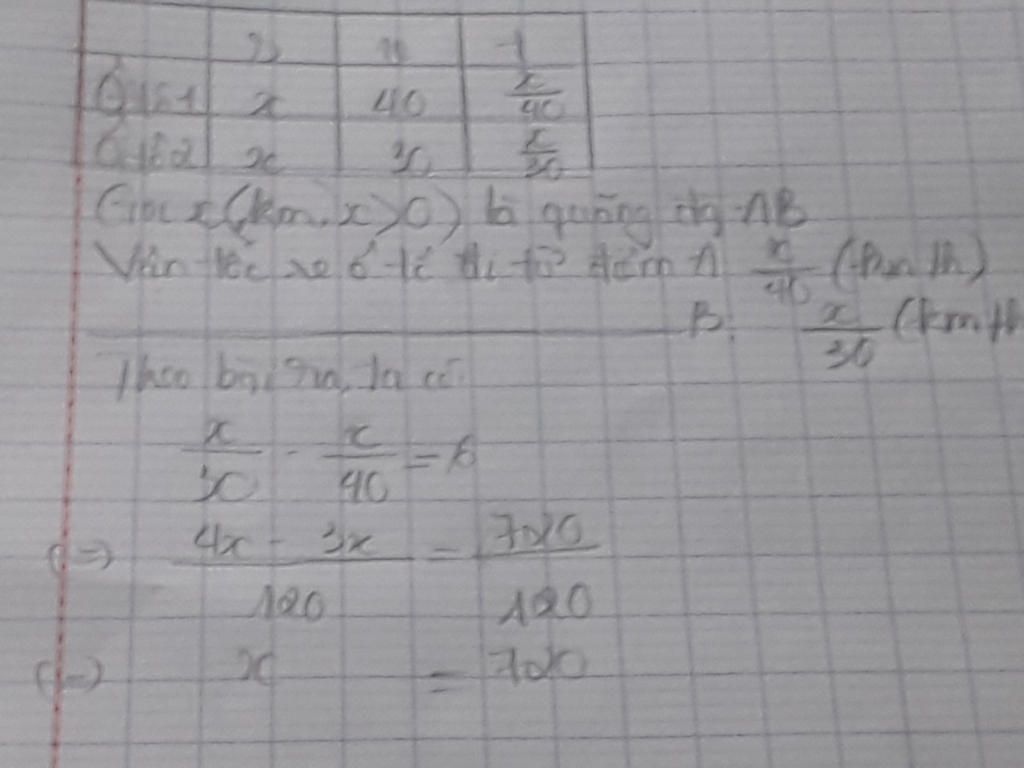 Ô tô 1 x 40 x/40
Ô tô 2 x 30 x/30
Gọi x (km, x>0) là quãng đg AB
Vận tốc xe ô tô đi từ điểm A x/40 (km/h)
B x/30 (km/h
Theo bài ra, ta có:
x/30 - x/40 = 6
(=) 4x - 3x / 120 = 720/120
(=) x = 720